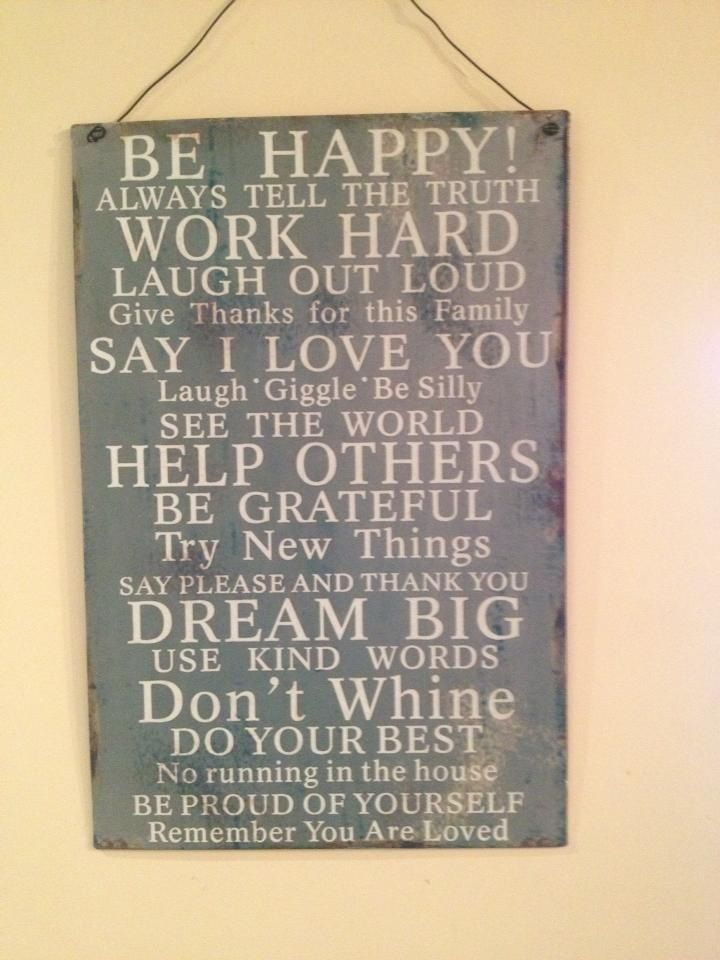 BE HAPPY!
ALWAYS TELL THE TRUTH
WORK HARD
LAUGH OUT LOUD
Give Thanks for this Family
SAY I LOVE YOU
Laugh • Giggle • Be Silly
SEE THE WORLD
HELP OTHERS
BE GRATEFUL
Try New Things
SAY PLEASE AND THANK YOU
DREAM BIG
USE KIND WORDS
Don't Whine
DO YOUR BEST
No running in the house
BE PROUD OF YOURSELF
Remember You Are Loved